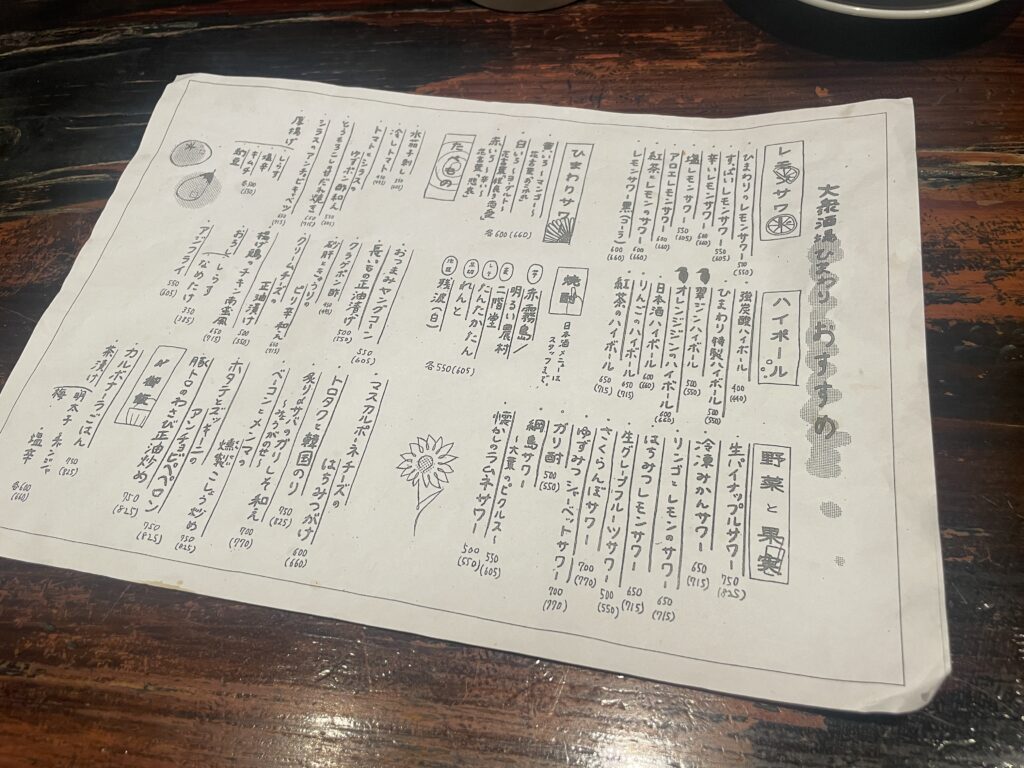 大衆酒場ひまわりおすすめ
レモンサワー
ひまわりのレモンサワー 500 (550)
すっぱいレモンサワー
辛いレモンサワー 600 (660)
塩レモンサワー 550 (605)
アロエレモンサワー
紅茶とレモンのサワー 600 (660)
レモンサワー 600 (660)
ハイボール
強炭酸ハイボール 400 (440)
ひまわり特製ハイボール 500 (550)
翠ジンハイボール 500 (550)
オレンジジンのハイボール 600 (660)
日本酒ハイボール 600 (660)
りんごのハイボール 650 (715)
紅茶のハイボール 650 (715)
野菜と果実
生パイナップルサワー 750 (825)
冷凍みかんサワー 650 (715)
リンゴとレモンのサワー 650 (715)
はちみつレモンサワー
生グレープフルーツサワー 650 (715)
さくらんぼサワー 500 (550)
ゆずみつシャーベットサワー 700 (770)
ガリ酎 500 (550)
綱島サワー
〜大葉のピクルス〜 550 (605)
懐かしのラムネサワー 500 (550)
ひまわりサワー
黄いろ〜マンゴー〜
白いろ〜ヨーグルト〜
赤いろ
各600 (660)
焼酎
日本酒メニューは
スタッフまで。
芋 赤霧島
麦 明るい農村
二階堂
たんたかたん
れんと
残波(白)
各550 (605)
たべもの
水茄子刺し
冷しトマト
トマトとシラスの
ゆずポン酢和え 550 (605)
とうもろこし甘だれ焼き
シラスのアンチョビキャベツ 650 (715)
厚揚げ
しらす
塩辛
キムチ
納豆
各500 (550)
おつまみヤングコーン 550 (605)
長いもの正油漬け 500 (550)
クラゲポン酢
砂肝ときゅうりの
ピリ辛和え
クリームチーズの
正油漬け
揚げ鶏のチキン南蛮風 650 (715)
おろし
しらす
なめたけ 350 (385)
アジフライ 550 (605)
マスカルポーネチーズの
はちみつがけ 600 (660)
トロタクと韓国のり 750 (825)
炙り〆サバのガリしそ和え
〜みょうがのせ〜
ベーコンとメンマの
燻製こしょう炒め 700 (770)
ホタテとズッキーニの
アンチョビペペロン 750 (825)
豚トロのわさび正油炒め 750 (825)
〆御飯
カルボナーラごはん 750 (825)
茶漬け
明太子
梅
塩辛
各600 (660)